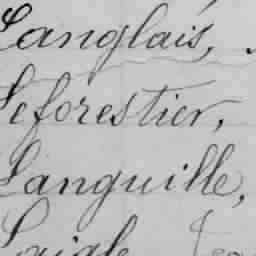 Langlais,
Leforestier,
Languille,
Laigle